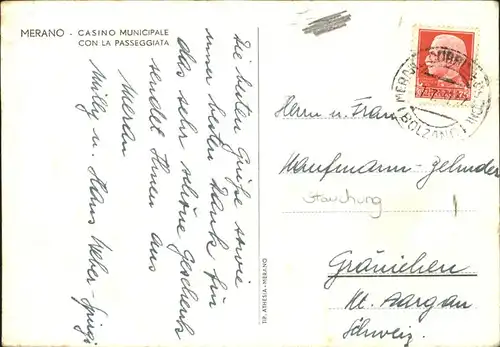 MERANO - CASINO MUNICIPALE
CON LA PASSEGGIATA
Die besten Grüße sowie
immer besten Dank für
das sehr schöne Geschenk
sendet Ihnen aus
Meran
Milly u. Hans Weber-
TIP. ATHESIA-MERANO
MERANO
BOLZANO
Herrn u. Frau
Kaufmann-Zehnder
Stauchung
Gränichen
Kt. Aargau
Schweiz.